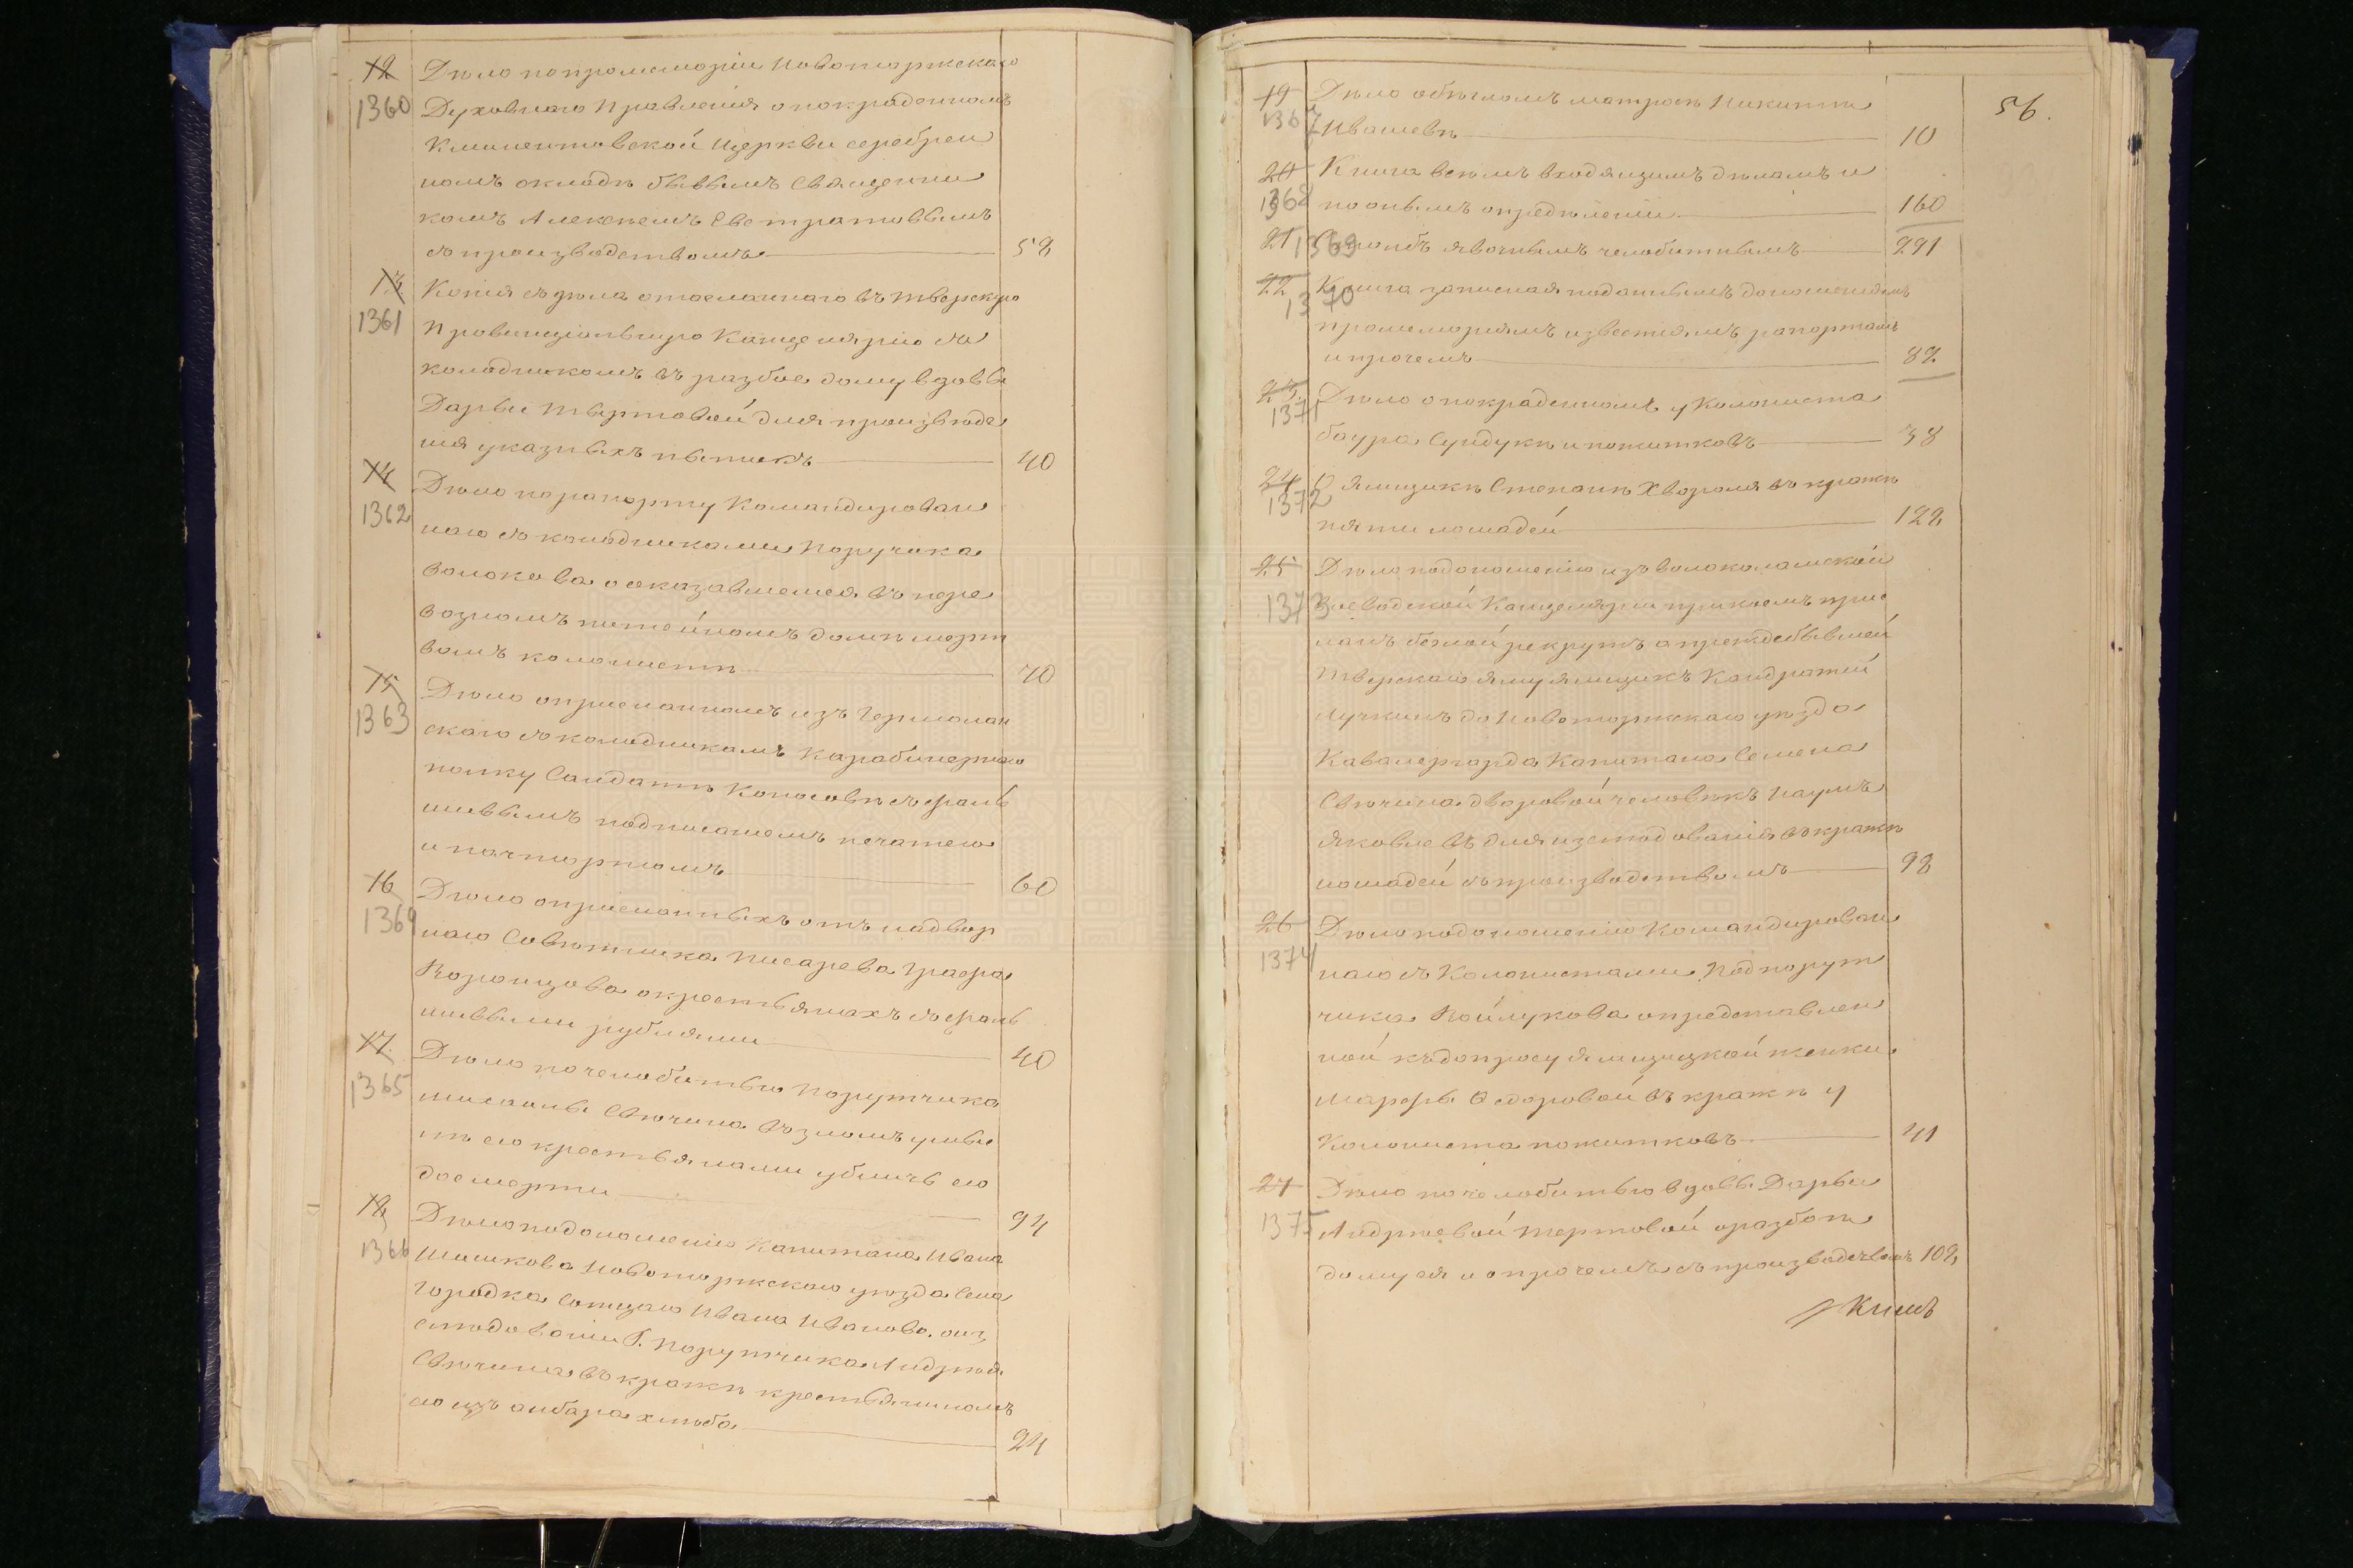 12 Дѣло попромеморіи Новоторжскаго
1360 Духовнаго Правленія опокраденномъ
Климентовской Церкви серебрен
номъ окладѣ бывымъ Священни
комъ Алексѣемъ Евстратовымъ
съпроизводствомъ 58
13 Копія съдѣла отосланнаго въ Тверскую
1361 Провинціальную Канцелярію съ
колодникомъ въ разбое дому вдовы
Дарьи Тыртовой для произведе
нія указныхъ пытокъ 40
14 Дѣло порапорту Командирован
1362 наго съ колодниками Поручика
Волокова о оказавшемся въ пере
возномъ питейномъ домѣ мерт
вомъ колонистѣ 70
15 Дѣло оприсланномъ изъ
1363 скаго съколодникомъ Карабинернаго
полку Салдатѣ Колосовѣ съфаль
шивымъ подписаніемъ печатью
и пачпортомъ 60
16 Дѣло оприсланныхъ отъ надвор
1364 наго Совѣтника Писарева Графа
Воронцова окрестьянахъ съфаль
шивыми рублями 40
17 Дѣло почелобитью Порутчика
1365 Свѣчина въ умы
лѣ его крестьянами убить его
досмерти 94
18 Дѣло подоношенію Капитана Ивана
1366 Шишкова Новоторжскаго уѣзда Села
Городка Сотцкаго Ивана Иванова. оиз
слѣдованіи Г. Порутчика Андрѣя
Свѣчина въ кражѣ крестьяниномъ
его изъ анбара хлѣба 24
56.
19 Дѣло обѣгломъ матросѣ Никитѣ
1367 Ивашевѣ 10
20 Книга всѣмъ входящимъ дѣламъ и
1368 поонымъ опредѣленіи 160
21 1369 Столбъ явочнымъ челобитнымъ 291
22 Книга записная поданнымъ доношеніямъ
1370 промеморіямъ извѣстіямъ рапортамъ
и прочемъ 82
23. Дѣло опокраденномъ у Колониста
1371 баура Сундукѣ и пожитковъ 38
24 О ямщикѣ Степанѣ Хворомя въ кражѣ
1372 пяти лошадей 122
25 Дѣло подоношенію изъ волоколамской
1373 Воеводской Канцеляріи прикоемъ прис
ланъ беглой рекрутъ апрежде бывшей
Тверскаго яму ямщикъ Кандратей
Лучкинъ да Новоторжскаго уѣзда
Кавалергарда Капитана Семена
Свѣчина дворовой человѣкъ Наумъ
Яковлевъ для изслѣдованія въ кражѣ
лошадей съпроизводствомъ 98
26 Дѣло подоношенію Командирован
1374 наго съ Колонистами Подпорут
чика Войлукова опредставлен
ной къдопросу ямщицкой женки
Марфы Ѳедоровой въ кражѣ у
Колониста пожитковъ 41
27 Дѣло почелобитью вдовы Дарьи
1375 Андрѣевой Тертовой оразбоѣ
дому ея и опрочемъ съпроизводствомъ 102